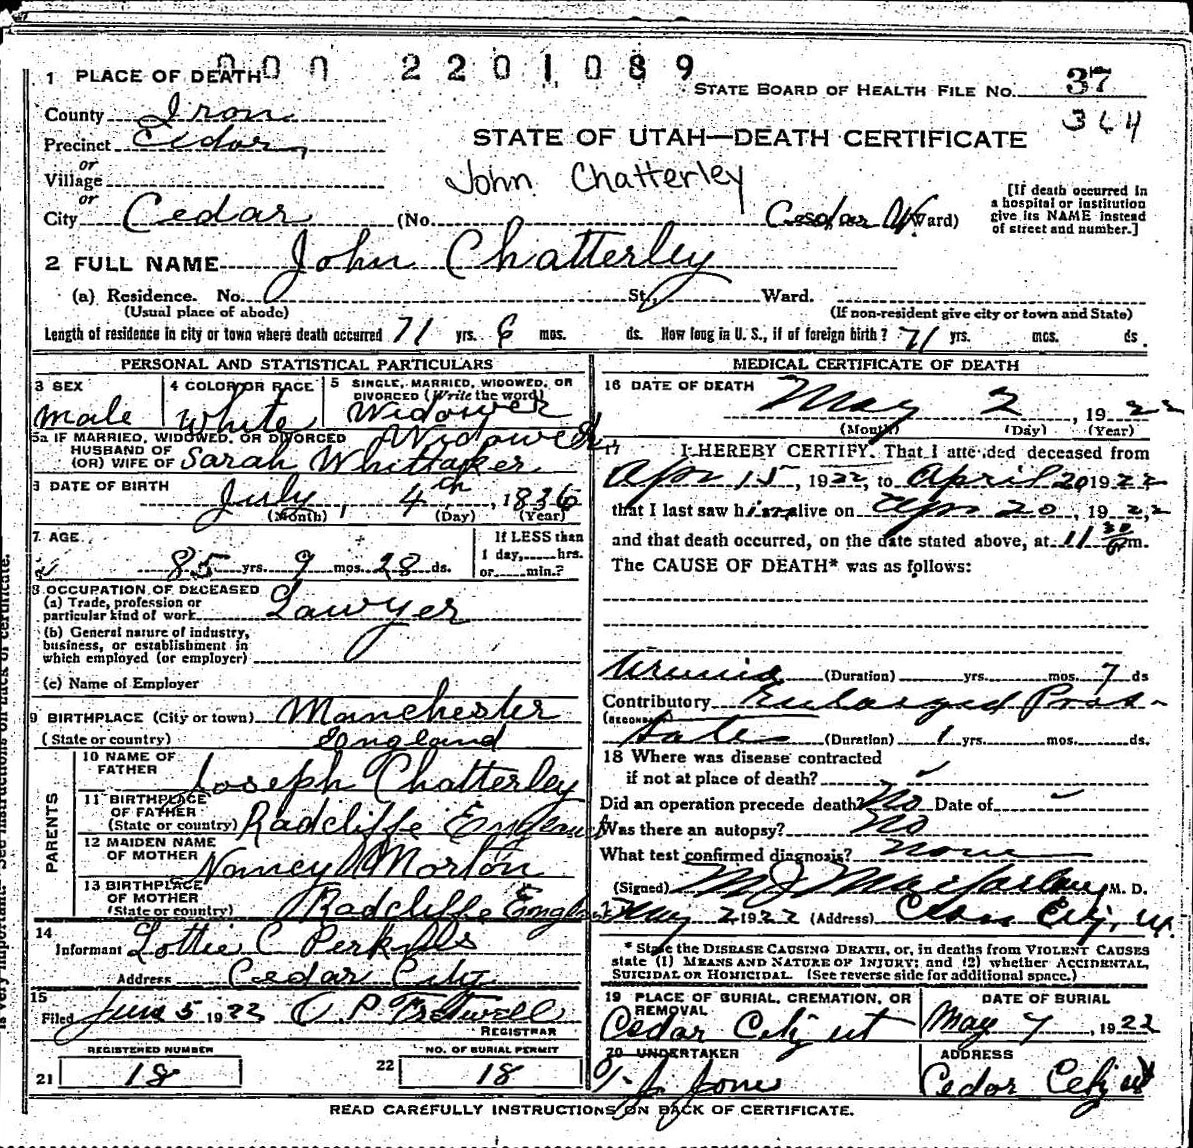 000 2201089
1 PLACE OF DEATH
STATE BOARD OF HEALTH FILE NO. 37
364
County Iron
Precinct Cedar
STATE OF UTAH—DEATH CERTIFICATE
or
Village
John Chatterley
or
City Cedar (No. Ward)
[If death occurred in
a hospital or institution
give its NAME instead
of street and number.]
2 FULL NAME John Chatterley
(a) Residence. No. St., Ward.
(Usual place of abode) (If non-resident give city or town and State)
Length of residence in city or town where death occurred 71 yrs. 6 mos. ds. How long in U. S., if of foreign birth? 71 yrs. mos. ds.
PERSONAL AND STATISTICAL PARTICULARS
3 SEX 4 COLOR OR RACE 5 SINGLE, MARRIED, WIDOWED, OR
DIVORCED (Write the word)
Male White Widower
5a IF MARRIED, WIDOWED, OR DIVORCED Widowed
HUSBAND OF
(OR) WIFE OF Sarah Whittaker
6 DATE OF BIRTH
July 4th, 1836
(Month) (Day) (Year)
7 AGE
If LESS than
1 day,......hrs.
or......min.?
85 yrs. 9 mos. 28 ds.
8 OCCUPATION OF DECEASED
(a) Trade, profession or
particular kind of work Lawyer
(b) General nature of industry,
business, or establishment in
which employed (or employer)
(c) Name of Employer
9 BIRTHPLACE (City or town) Manchester
(State or country) England
PARENTS
10 NAME OF
FATHER Joseph Chatterley
11 BIRTHPLACE
OF FATHER
(State or country) Radcliffe England
12 MAIDEN NAME
OF MOTHER Nancy Morton
13 BIRTHPLACE
OF MOTHER
(State or country) Radcliffe England
14
Informant Lottie C Perkins
Address Cedar City
15
Filed June 5 1922 O. P. Fretwell
REGISTRAR
REGISTERED NUMBER NO. OF BURIAL PERMIT
21 18 22 18
MEDICAL CERTIFICATE OF DEATH
16 DATE OF DEATH
May 2, 1922
(Month) (Day) (Year)
17 I HEREBY CERTIFY. That I attended deceased from
Apr 15, 1922, to April 20 1922
that I last saw him alive on Apr 20, 1922
and that death occurred, on the date stated above, at 11 30 m.
The CAUSE OF DEATH* was as follows:
Uremia (Duration) yrs. mos. 7 ds
Contributory Enlarged Pros-
(SECONDARY)
tate (Duration) 1 yrs. mos. ds.
18 Where was disease contracted
if not at place of death?
Did an operation precede death? No Date of
Was there an autopsy? No
What test confirmed diagnosis? none
(Signed) M J Macfarlane M. D.
May 2 1922 (Address) Cedar City, Ut.
* State the DISEASE CAUSING DEATH, or, in deaths from VIOLENT CAUSES
state (1) MEANS AND NATURE OF INJURY; and (2) whether ACCIDENTAL,
SUICIDAL OR HOMICIDAL. (See reverse side for additional space.)
19 PLACE OF BURIAL, CREMATION, OR
REMOVAL
DATE OF BURIAL
Cedar City ut May 7, 1922
20 UNDERTAKER ADDRESS
T. J. Jones Cedar City ut
READ CAREFULLY INSTRUCTIONS ON BACK OF CERTIFICATE.